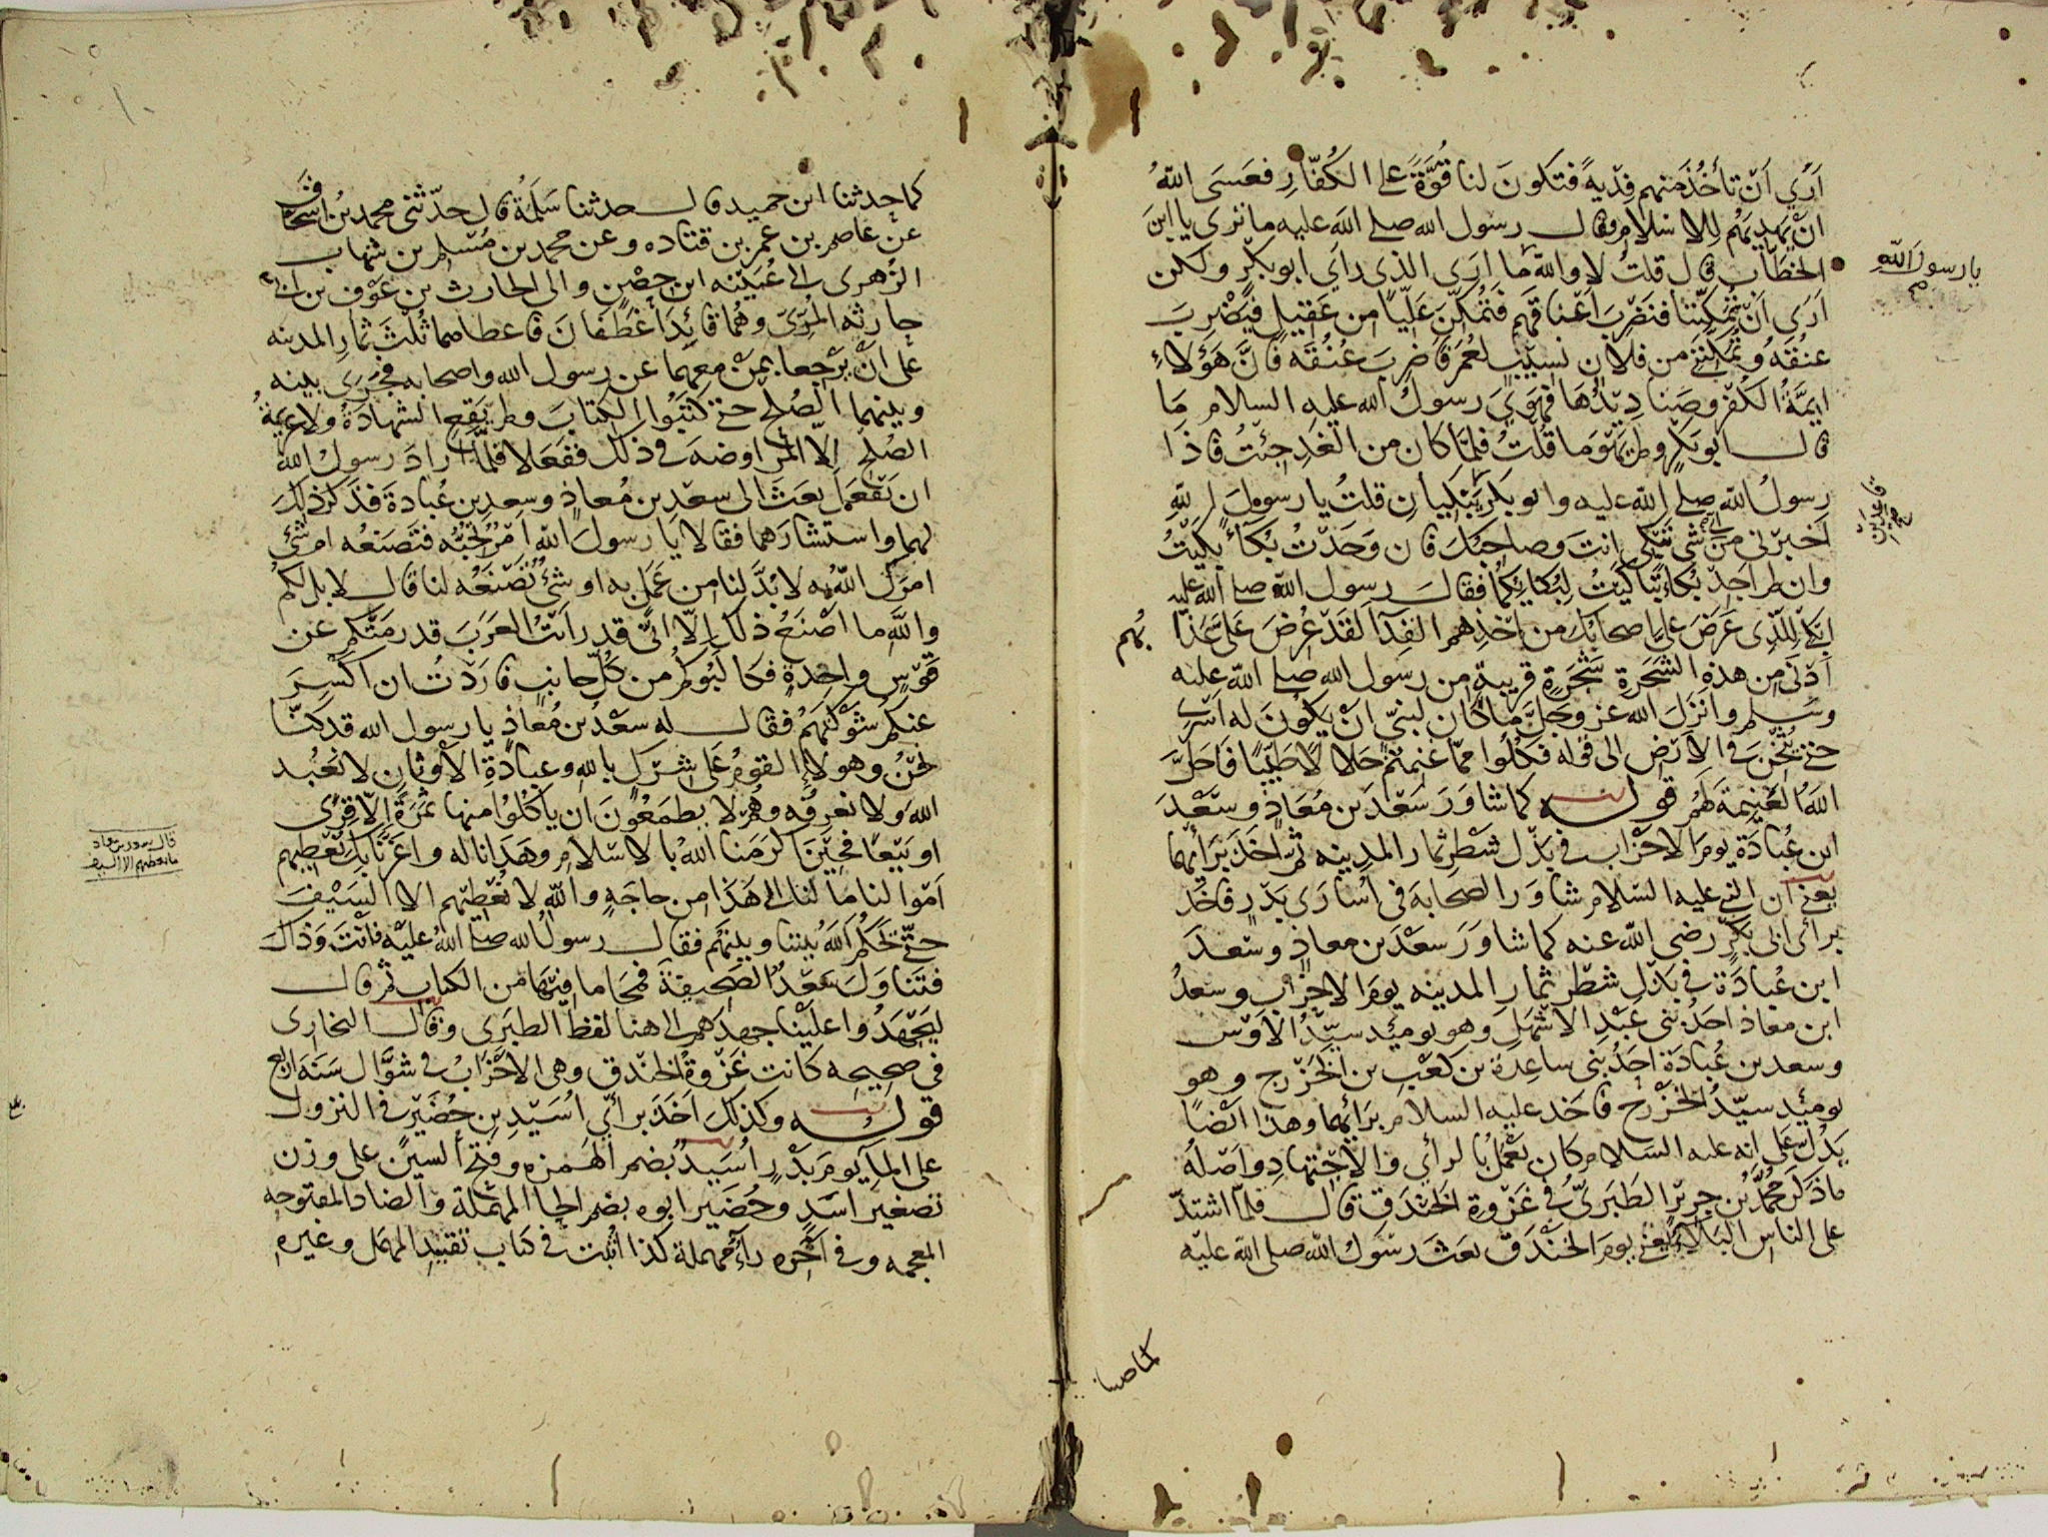 أرى أن تأخذ منهم فدية فتكون لنا قوة على الكفار فعسى الله
أن يهديهم للاسلام وقال رسول الله صلى الله عليه ما ترى يا ابن
الخطاب قال قلت لا والله ما أرى الذي رأى أبو بكر ولكن
يا رسول الله
أرى أن تمكننا فنضرب أعناقهم فتمكن عليا من عقيل فيضرب
عنقه وتمكنني من فلان نسيب لعمر فاضرب عنقه فإن هؤلاء
ايمة الكفر وصناديدها فهوي رسول الله عليه السلام ما
قال أبو بكر ولم يهو ما قلت فلما كان من الغد جئت فاذا
رسول الله صلى الله عليه وابو بكر يبكيان قلت يا رسول الله
قاعدين
أخبرني من أي شي تبكي انت وصاحبك فان وجدت بكاء بكيت
وان لم أجد بكاء تباكيت لبكائكما فقال رسول الله صلى الله عليه
أبكي للذي عرض علي اصحابك من أخذهم الفدا لقد عرض علي عذا
بهم
أدنى من هذه الشجرة شجرة قريبة من رسول الله صلى الله عليه
وسلم وانزل الله عز وجل ما كان لنبي أن يكون له أسرى
حتى يثخن في الارض الى قوله فكلوا مما غنمتم حلالا طيبا فأحل
الله الغنيمة لهم قوله كما شاور سعد بن معاذ وسعد
ابن عبادة يوم الأحزاب في بذل شطر ثمار المدينه ثم أخذ برأيهما
يعني أن النبي عليه السلام شاور الصحابه في أسارى بدر فأخذ
برأي أبي بكر رضي الله عنه كما شاور سعد بن معاذ وسعد
ابن عبادة في بذل شطر ثمار المدينه يوم الاحزاب وسعد
ابن معاذ أحد بني عبد الأشهل وهو يومئد سيد الأوس
وسعد بن عبادة أحد بني ساعدة بن كعب بن الخزرج وهو
يومئد سيد الخزرج فأخد عليه السلام برأيهما وهذا أيضا
يدل على انه عليه السلام كان يعمل بالرأي والاجتهاد وأصله
ما ذكر محمد بن جرير الطبري في غزوة الخندق قال فلما اشتد
على الناس البلاء يعني يوم الخندق بعث رسول الله صلى الله عليه
كما حدثنا
كما حدثنا ابن حميد قال حدثنا سلمة قال حدثني محمد بن اسحاق
عن عاصم بن عمر بن قتاده وعن محمد بن مسلم بن شهاب
الزهري الى عيينه ابن حصن والى الحارث بن عوف بن أبي
حارثه المري وهما قائدا غطفان فاعطاهما ثلث ثمار المدينه
على أن يرجعا بمن معهما عن رسول الله واصحابه فجرى بينه
وبينهما الصلح حتى كتبوا الكتاب ولم يقع الشهادة ولا عزيمة
الصلح الا المراوضة في ذلك ففعلا فلما أراد رسول الله
ان يفعل بعث الى سعد بن معاذ وسعد بن عبادة فذكر ذلك
لهما واستشارهما فقالا يا رسول الله أمر تحبه فتصنعه ام شئ
امرك الله به لا بد لنا من عمل به او شئ تصنعه لنا قال لا بل لكم
والله ما أصنع ذلك إلا أني قد رأيت العرب قد رمتكم عن
قوس واحدة فكالبوكم من كل جانب فأردت ان أكسر
عنكم شوكتهم فقال له سعد بن معاذ يا رسول الله قد كنا
نحن وهولاء القوم على شرك بالله وعبادة الأوثان لا نعبد
الله ولا نعرفه وهم لا يطمعون ان يأكلوا منها ثمرة إلا قرى
قال سعد بن معاذ
ما نعطيهم الا السيف
او بيعا فحين أكرمنا الله بالاسلام وهدانا له وأعزنا بك نعطيهم
أموالنا ما لنا إلى هذا من حاجة والله لا نعطيهم الا السيف
حتى يحكم الله بيننا وبينهم فقال رسول الله صلى الله عليه فأنت وذاك
فتناول سعد الصحيفة فمحا ما فيها من الكتاب ثم قال
ليجهدوا علينا جهدهم الى هنا لفظ الطبري وقال البخاري
في صحيحه كانت غزوة الخندق وهي الأحزاب في شوال سنة اربع
قوله وكذلك أخذ برأي أسيد بن حضير في النزول
على الماء يوم بدر أسيد بضم الهمزه وفتح السين على وزن
تصغير أسد وحضير ابوه بضم الحا المهملة والضاد المفتوحه
المعجمه وفي آخره راء مهملة كذا أثبت في كتاب تقييد المهمل وغيره